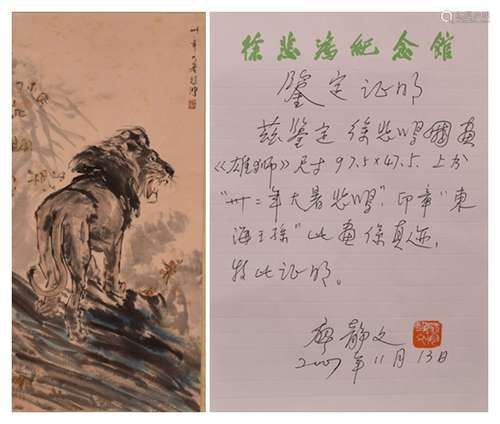 卅二年大暑悲鸿
徐悲鴻紀念館
鉴定证明
兹鉴定徐悲鸿国画
《雄狮》尺寸97.5×47.5.上书
“卅二年大暑悲鸿”.印章“東
海王孫”此画係真迹,
特此证明。
廖静文
2007年11月13日